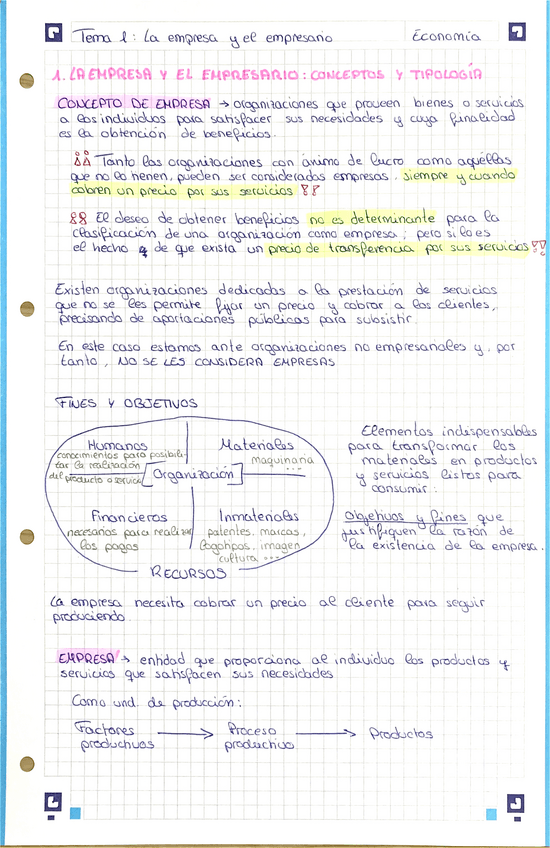 Tema 1: La empresa y el empresario Economía
1. LA EMPRESA Y EL EMPRESARIO: CONCEPTOS Y TIPOLOGÍA
CONCEPTO DE EMPRESA → organizaciones que proveen bienes o servicios
a los individuos para satisfacer sus necesidades y cuya finalidad
es la obtención de beneficios.
Tanto las organizaciones con ánimo de lucro como aquéllas
que no lo tienen, pueden ser consideradas empresas, siempre y cuando
cobren un precio por sus servicios !!
El deseo de obtener beneficios no es determinante para la
clasificación de una organización como empresa; pero si lo es
el hecho de que exista un precio de transferencia por sus servicios !!
Existen organizaciones dedicadas a la prestación de servicios
que no se les permite fijar un precio y cobrar a los clientes,
precisando de aportaciones públicas para subsistir.
En este caso estamos ante organizaciones no empresariales y, por
tanto, NO SE LES CONSIDERA EMPRESAS
FINES Y OBJETIVOS
Humanos
conocimientos para posibili-
tar la realización
del producto o servicio
Materiales
maquinaria
...
Organización
Financieros
necesarios para realizar
los pagos
Inmateriales
patentes, marcas,
logotipos, imagen
cultura ...
RECURSOS
Elementos indispensables
para transformar los
materiales en productos
y servicios listos para
consumir.
Objetivos y fines que
justifiquen la razón de
la existencia de la empresa.
La empresa necesita cobrar un precio al cliente para seguir
produciendo.
EMPRESA → entidad que proporciona al individuo los productos y
servicios que satisfacen sus necesidades
Como und. de producción:
Factores → Proceso → Productos
productivos productivo